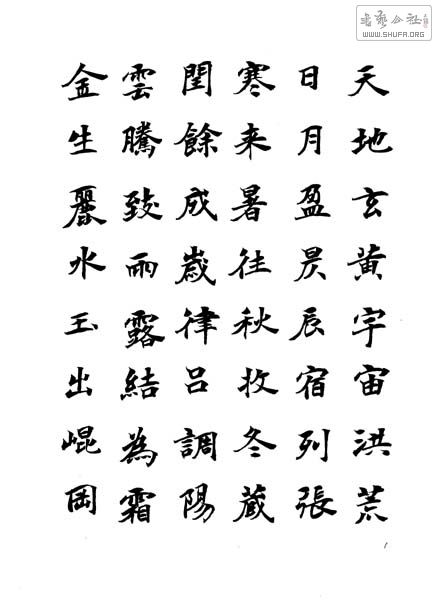 天地玄黄宇宙洪荒
日月盈昃辰宿列張
寒来暑往秋收冬藏
閏餘成歲律吕調陽
雲騰致雨露結為霜
金生麗水玉出崐岡
WWW.SHUFA.ORG
1